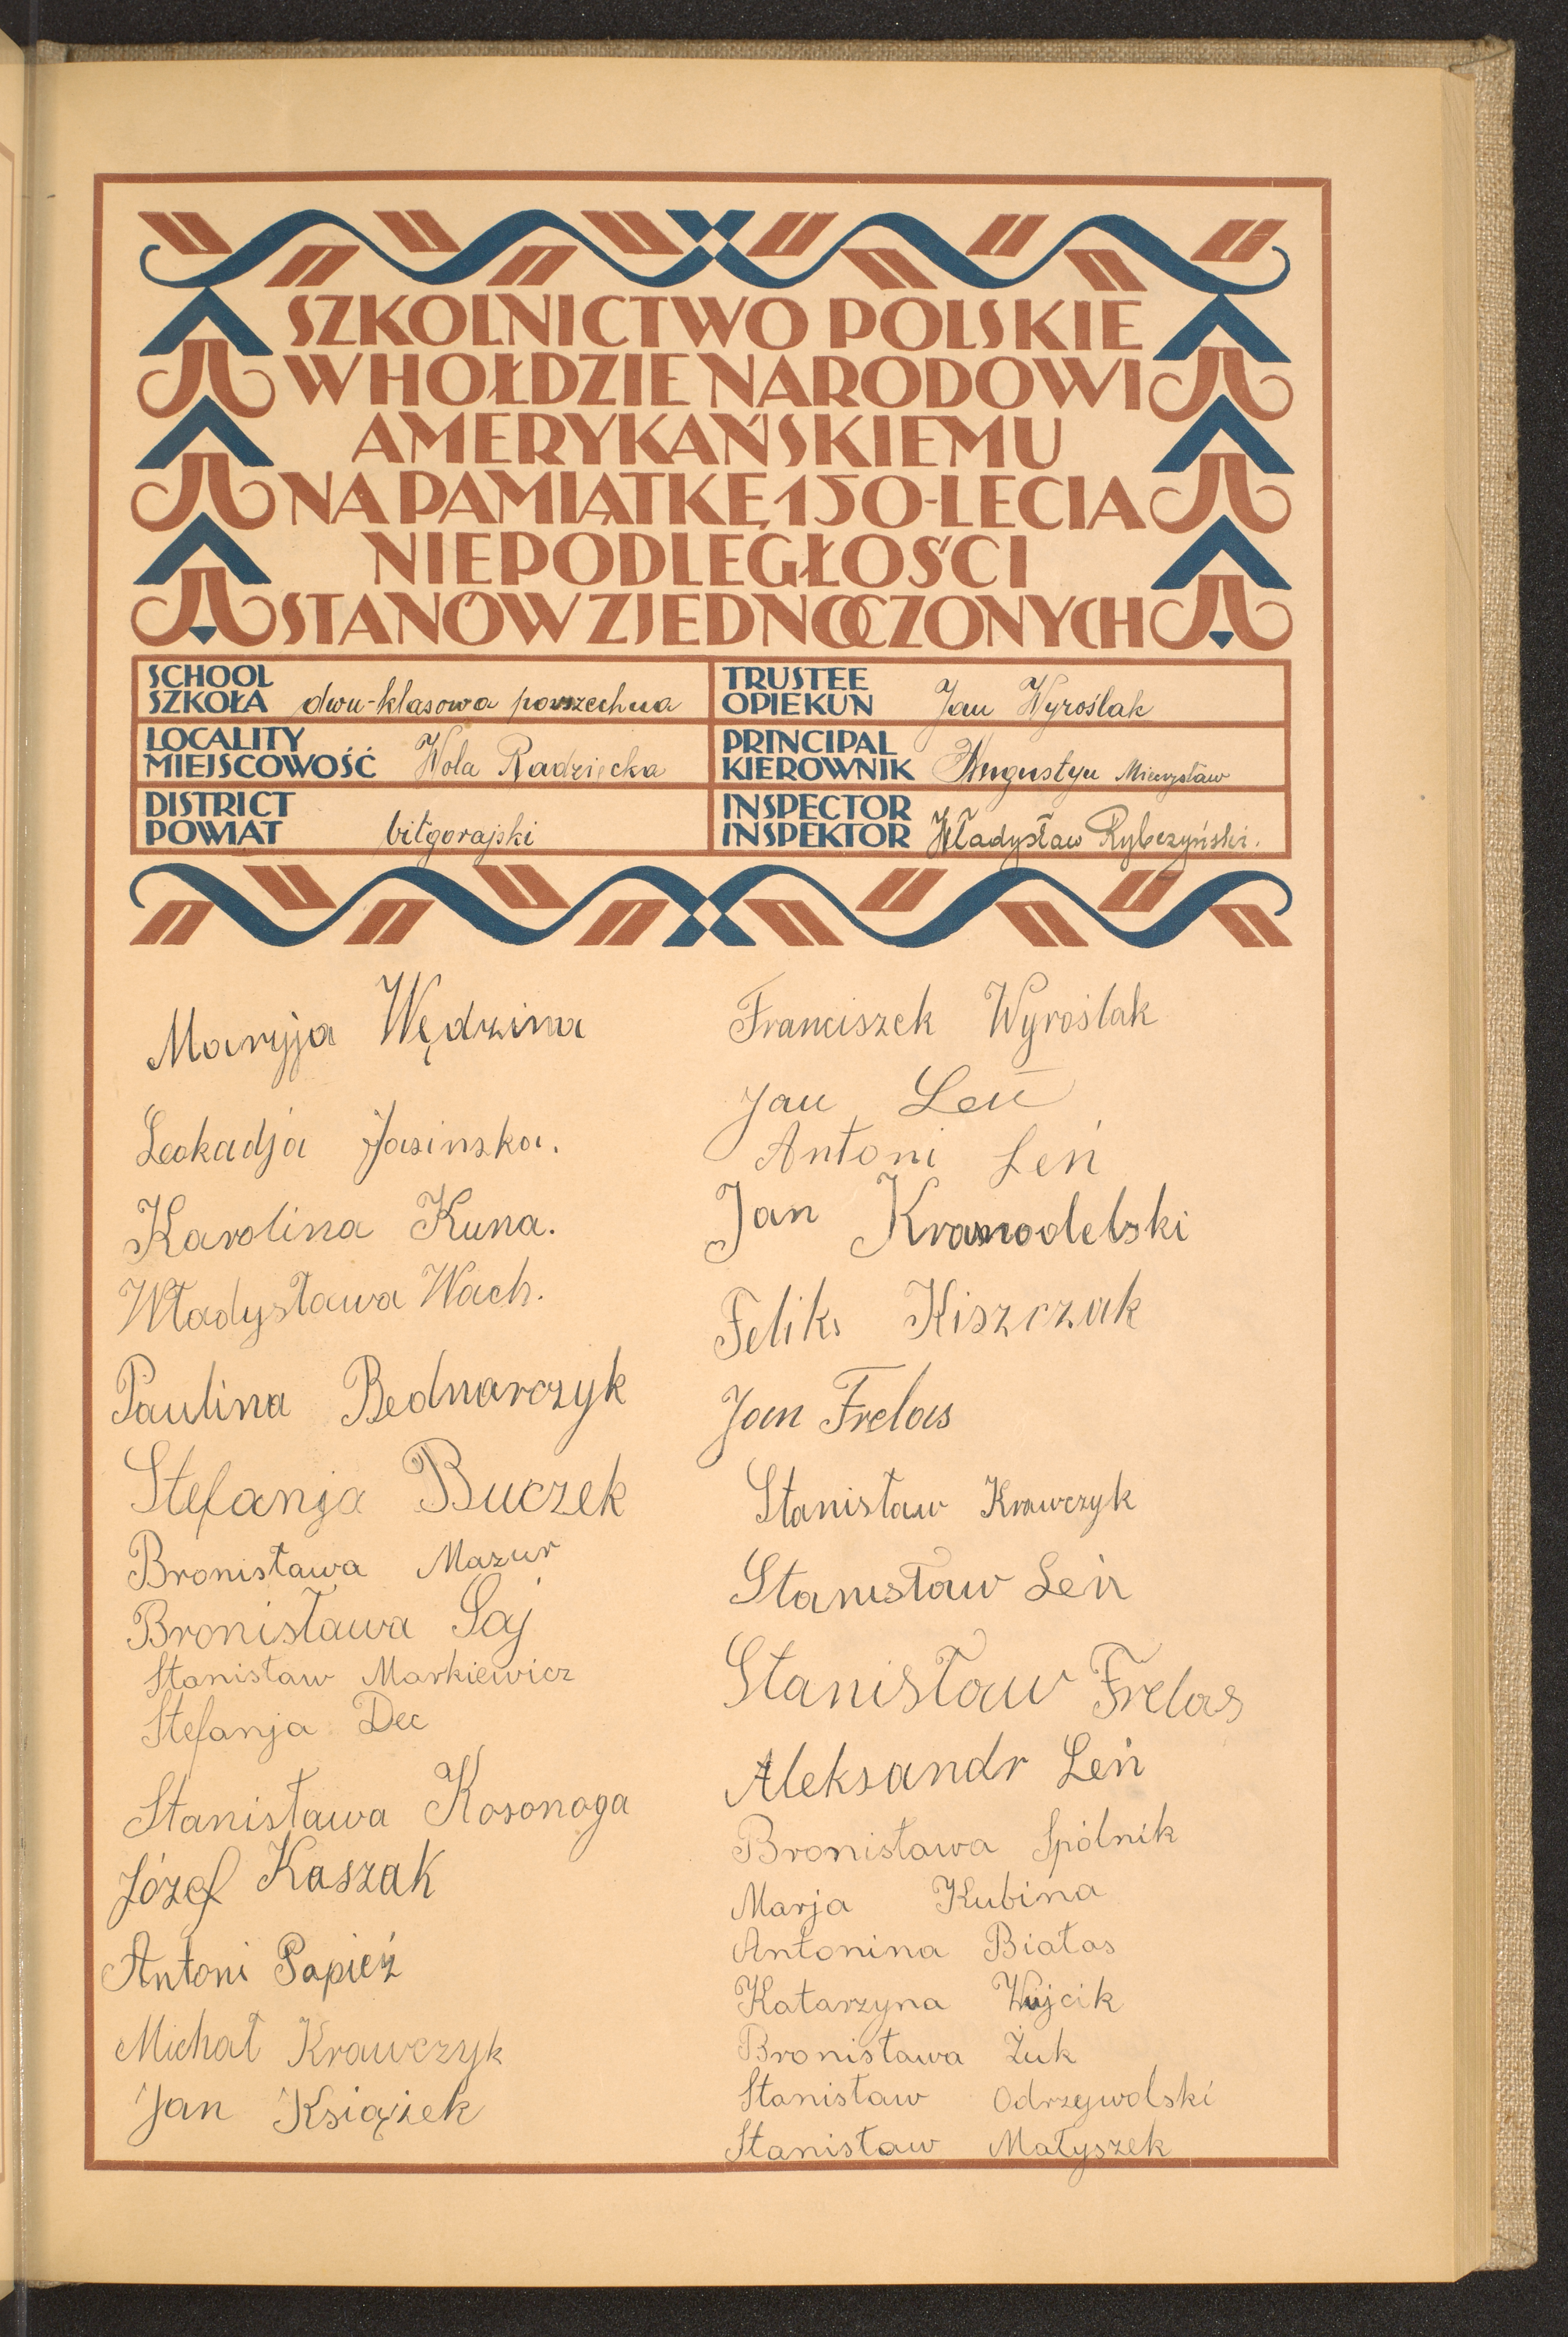 SZKOLNICTWO POLSKIE
W HOŁDZIE NARODOWI
AMERYKAŃSKIEMU
NA PAMIĄTKĘ 150-LECIA
NIEPODLEGŁOŚCI
STANÓW ZJEDNOCZONYCH
SCHOOL
SZKOŁA dwu-klasowa powszechna
LOCALITY
MIEJSCOWOŚĆ Wola Radzięcka
DISTRICT
POWIAT biłgorajski
TRUSTEE
OPIEKUN Jan Wyroślak
PRINCIPAL
KIEROWNIK Augustyn Mieczysław
INSPECTOR
INSPEKTOR Władysław Rybczyński.
Maryja Wędzina
Leokadja Jasinska.
Karolina Kuna.
Władysława Wach.
Paulina Bednarczyk
Stefanja Buczek
Bronisława Mazur
Bronisława Saj
Stanisław Markiewicz
Stefanja Dec
Stanisława Kosonoga
Józef Kaszak
Antoni Papież
Michał Krawczyk
Jan Książek
Franciszek Wyroślak
Jan Leń
Antoni Leń
Jan
Feliks Kiszczak
Jan Frelas
Stanisław Krawczyk
Stanisław Leń
Stanisław Frelas
Aleksandr Leń
Bronisława Spólnik
Marja Kubina
Antonina Białas
Katarzyna Wujcik
Bronisława Żuk
Stanisław Odrzywolski
Stanisław Małyszek